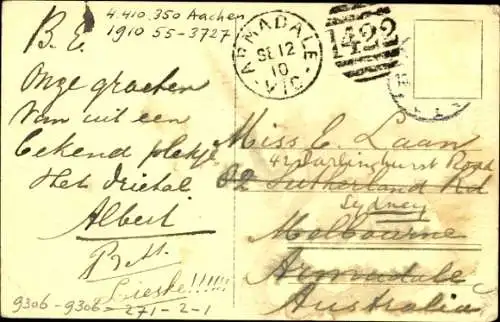 4.410.350 Aachen
1910 55-3727
B. E.
Onze groeten
Van uit een
bekend plekje
Het drietal
Albert
Lieske!!!!!
9306-9306-271-2-1
ARMADALE
SE 12
10
VIC
1422
Miss C. Laan
42 Darlinghurst Road
82 Sutherland Rd
Sydney
Melbourne
Armadale
Australia